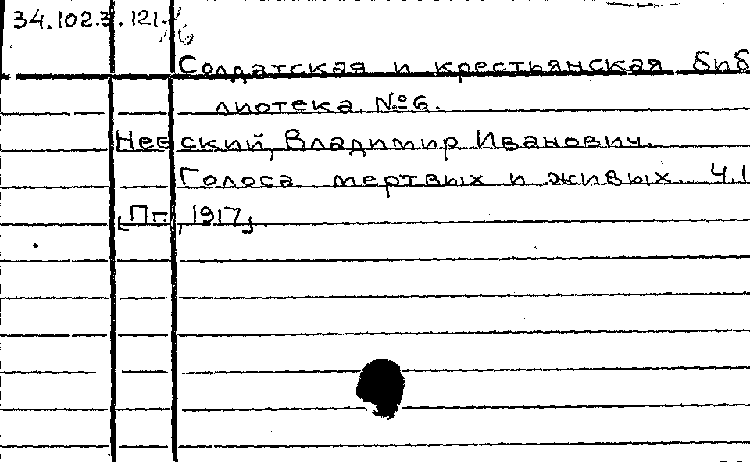 34.102.3.121./6
Солдатская и крестьянская биб
лиотека. №6.
Невский, Владимир Иванович.
Голоса мертвых и живых. Ч.1
[Пг., 1917]